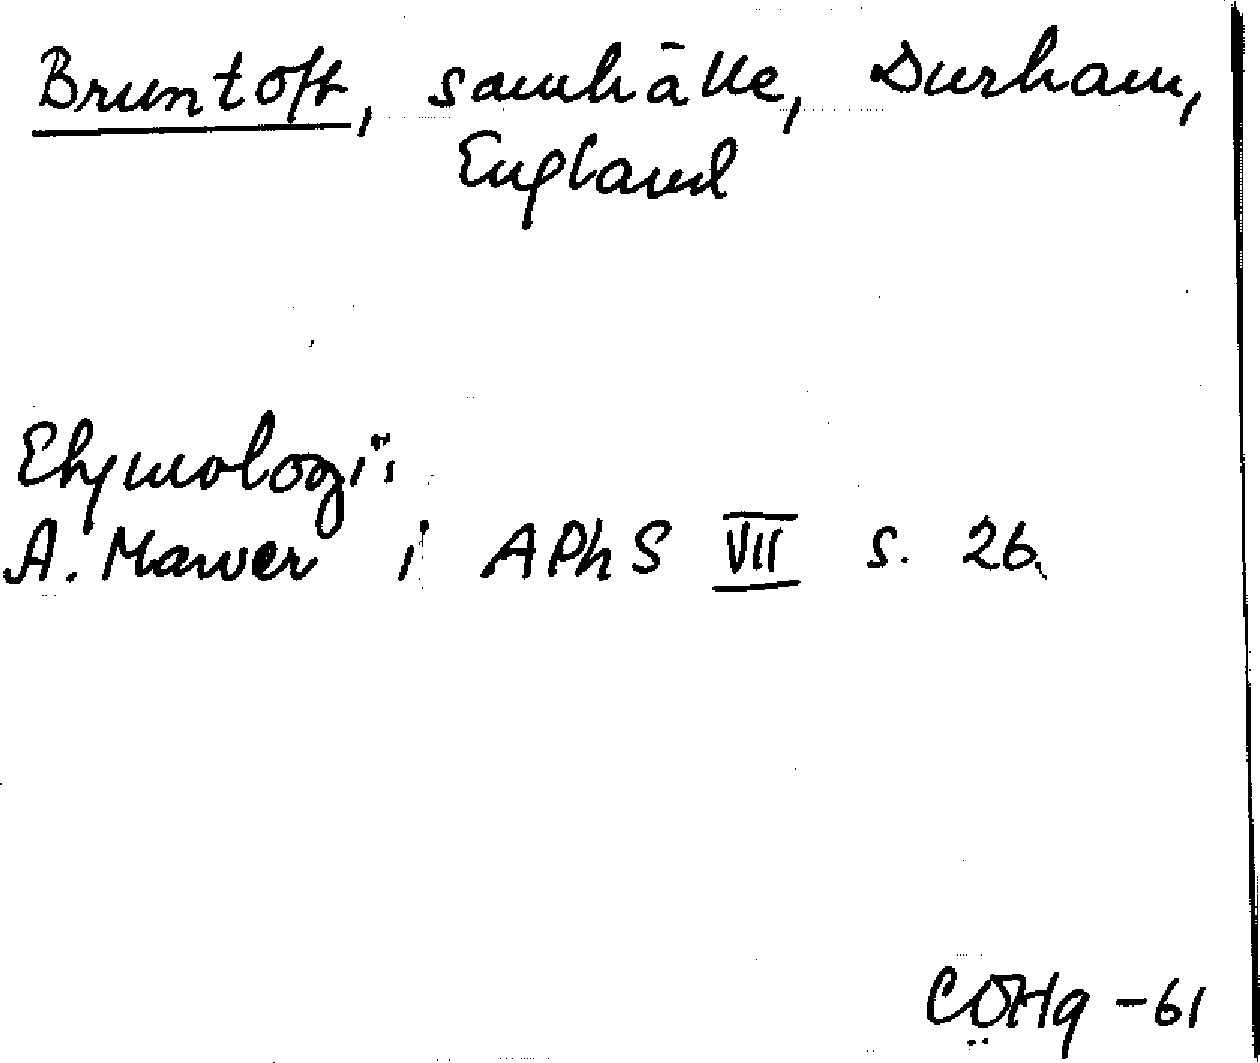 Bruntoft, samhälle, Durham,
England
Etymologi:
A. Mawer i APhS VII s. 26.
COHg -61